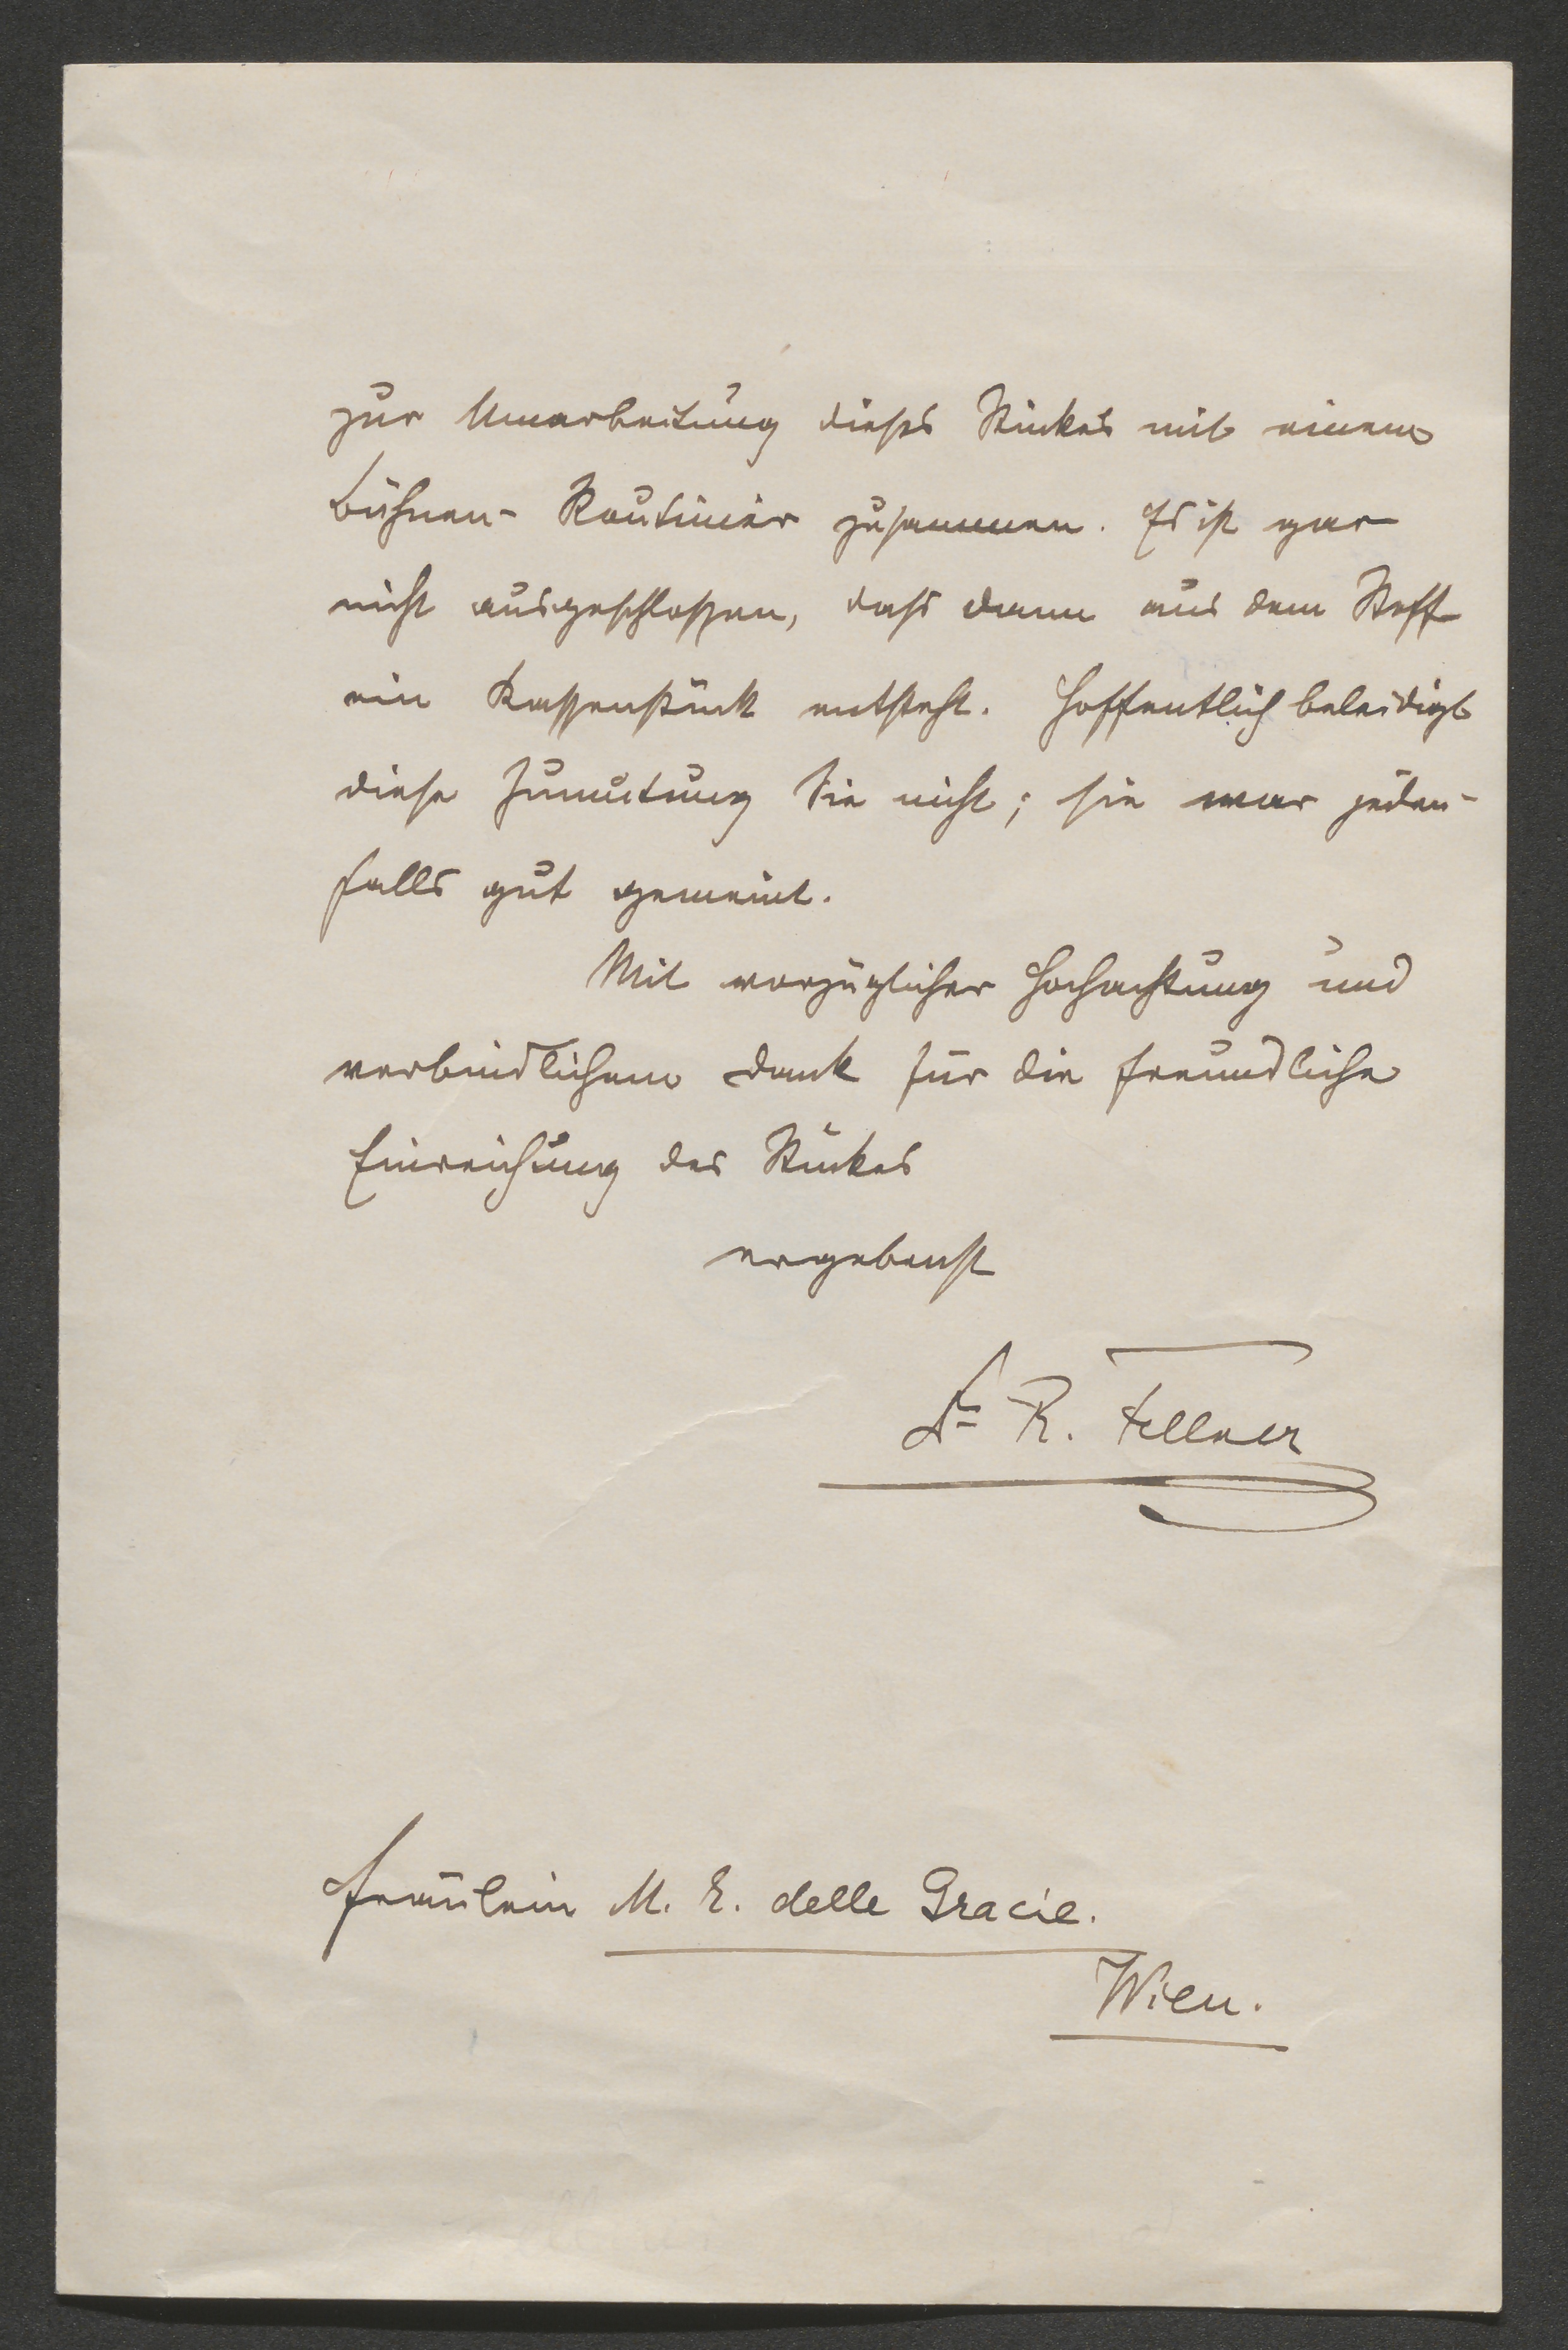 zur Umarbeitung dieses Stückes mit einem
Bühnen-Routinier zusammen. Es ist gar
nicht ausgeschlossen, dass dann aus dem Stoff
ein Kassenstück entsteht. Hoffentlich beleidigt
diese Zumutung Sie nicht; sie war jeden-
falls gut gemeint.
Mit vorzüglicher Hochachtung und
verbindlichem Dank für die freundliche
Einreichung des Stückes
ergebenst
Dr R. Fellner
Fräulein M. E. delle Gracie.
Wien.